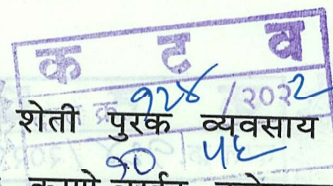 क ट व
क्र १२४ /२०२२
शेती पुरक व्यवसाय
१० ५६